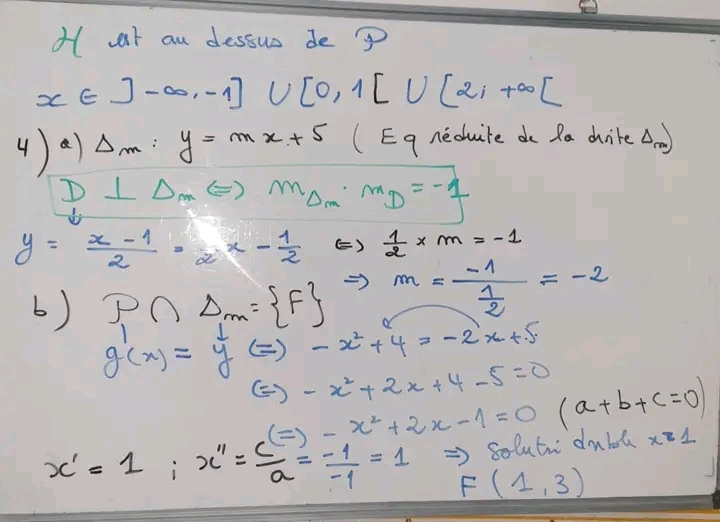 H est au dessus de P
x ∈ ]-∞,-1] ∪ [0,1[ ∪ [2; +∞[
4) a) Δm: y = mx+5 (Eq réduite de la droite Δm)
D ⊥ Δm ⇔ mΔm · mD = -1
y = x-1/2 = 1/2 x - 1/2 ⇔ 1/2 × m = -1
⇒ m = -1/(1/2) = -2
b) P ∩ Δm = {F}
g(x) = y ⇔ -x²+4 = -2x+5
⇔ -x²+2x+4-5=0
⇔ -x²+2x-1=0 (a+b+c=0)
x' = 1 ; x" = c/a = -1/-1 = 1 ⇒ Soluti double x=1
F(1,3)